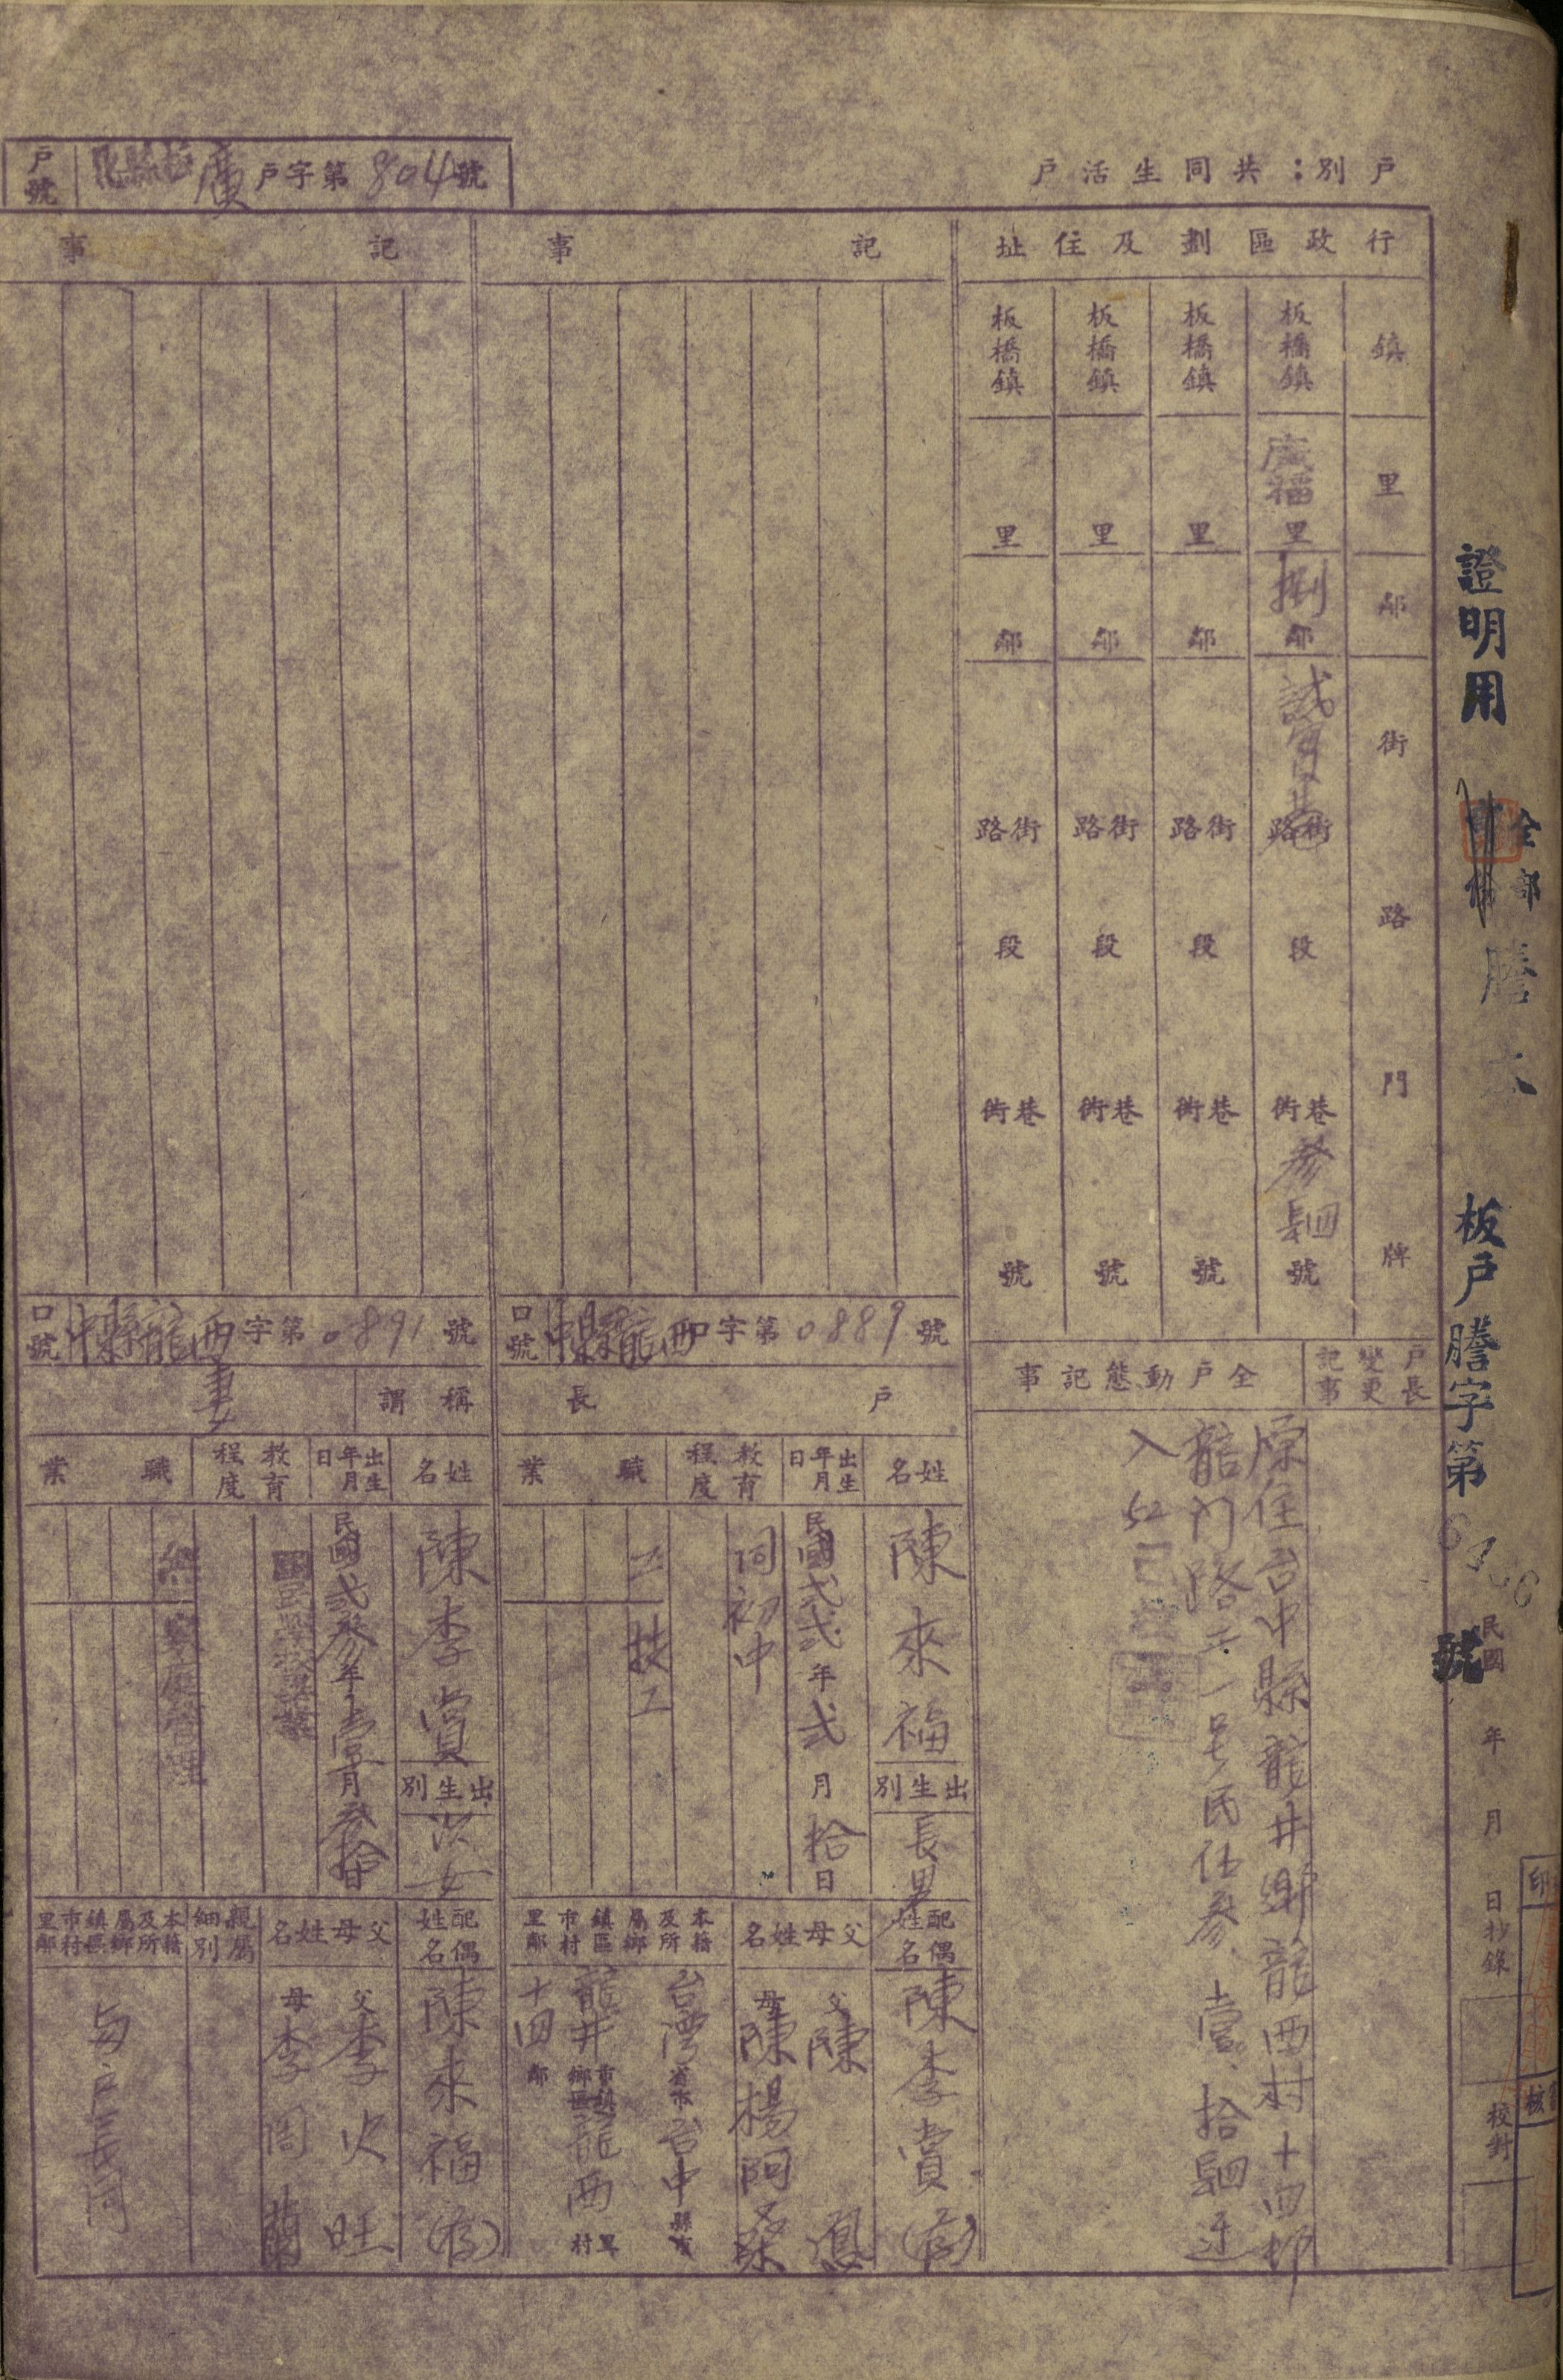 證明用
全部
謄本
板戶謄字第
號
民國
年
月
日抄錄
校對
戶別：共同生活戶
戶號
廣戶字第804號
行政區劃及住址
鎮
里
鄰
街
路
門
牌
板橋鎮
廣福里
捌鄰
街路
段
巷衖
參拾肆號
板橋鎮
里
鄰
街路
段
巷衖
號
板橋鎮
里
鄰
街路
段
巷衖
號
板橋鎮
里
鄰
街路
段
巷衖
號
戶長變更記事
全戶動態記事
原住台中縣龍井鄉龍西村十四鄰
龍門路六一號民伍參、壹、拾肆遷
入
記事
口號中縣龍西口字第0889號
戶長
姓名
陳來福
出生別
長男
出生年月日
民國貳貳年貳月拾日
教育程度
初中
職業
工
技工
配偶姓名
陳李賞(存)
父母姓名
父陳
母陳楊阿
本籍及所屬鄉鎮區市村里鄰
台灣省市台中縣市
龍井市鎮鄉區龍西里村
十四鄰
記事
口號中縣龍西字第0891號
稱謂
妻
姓名
陳李賞
出生別
次女
出生年月日
民國貳參年壹月參拾日
教育程度
國民學校畢業
職業
無
家庭管理
配偶姓名
陳來福(存)
父母姓名
父李火旺
母李周蘭
親屬細別
本籍及所屬鄉鎮區市村里鄰
與戶長同